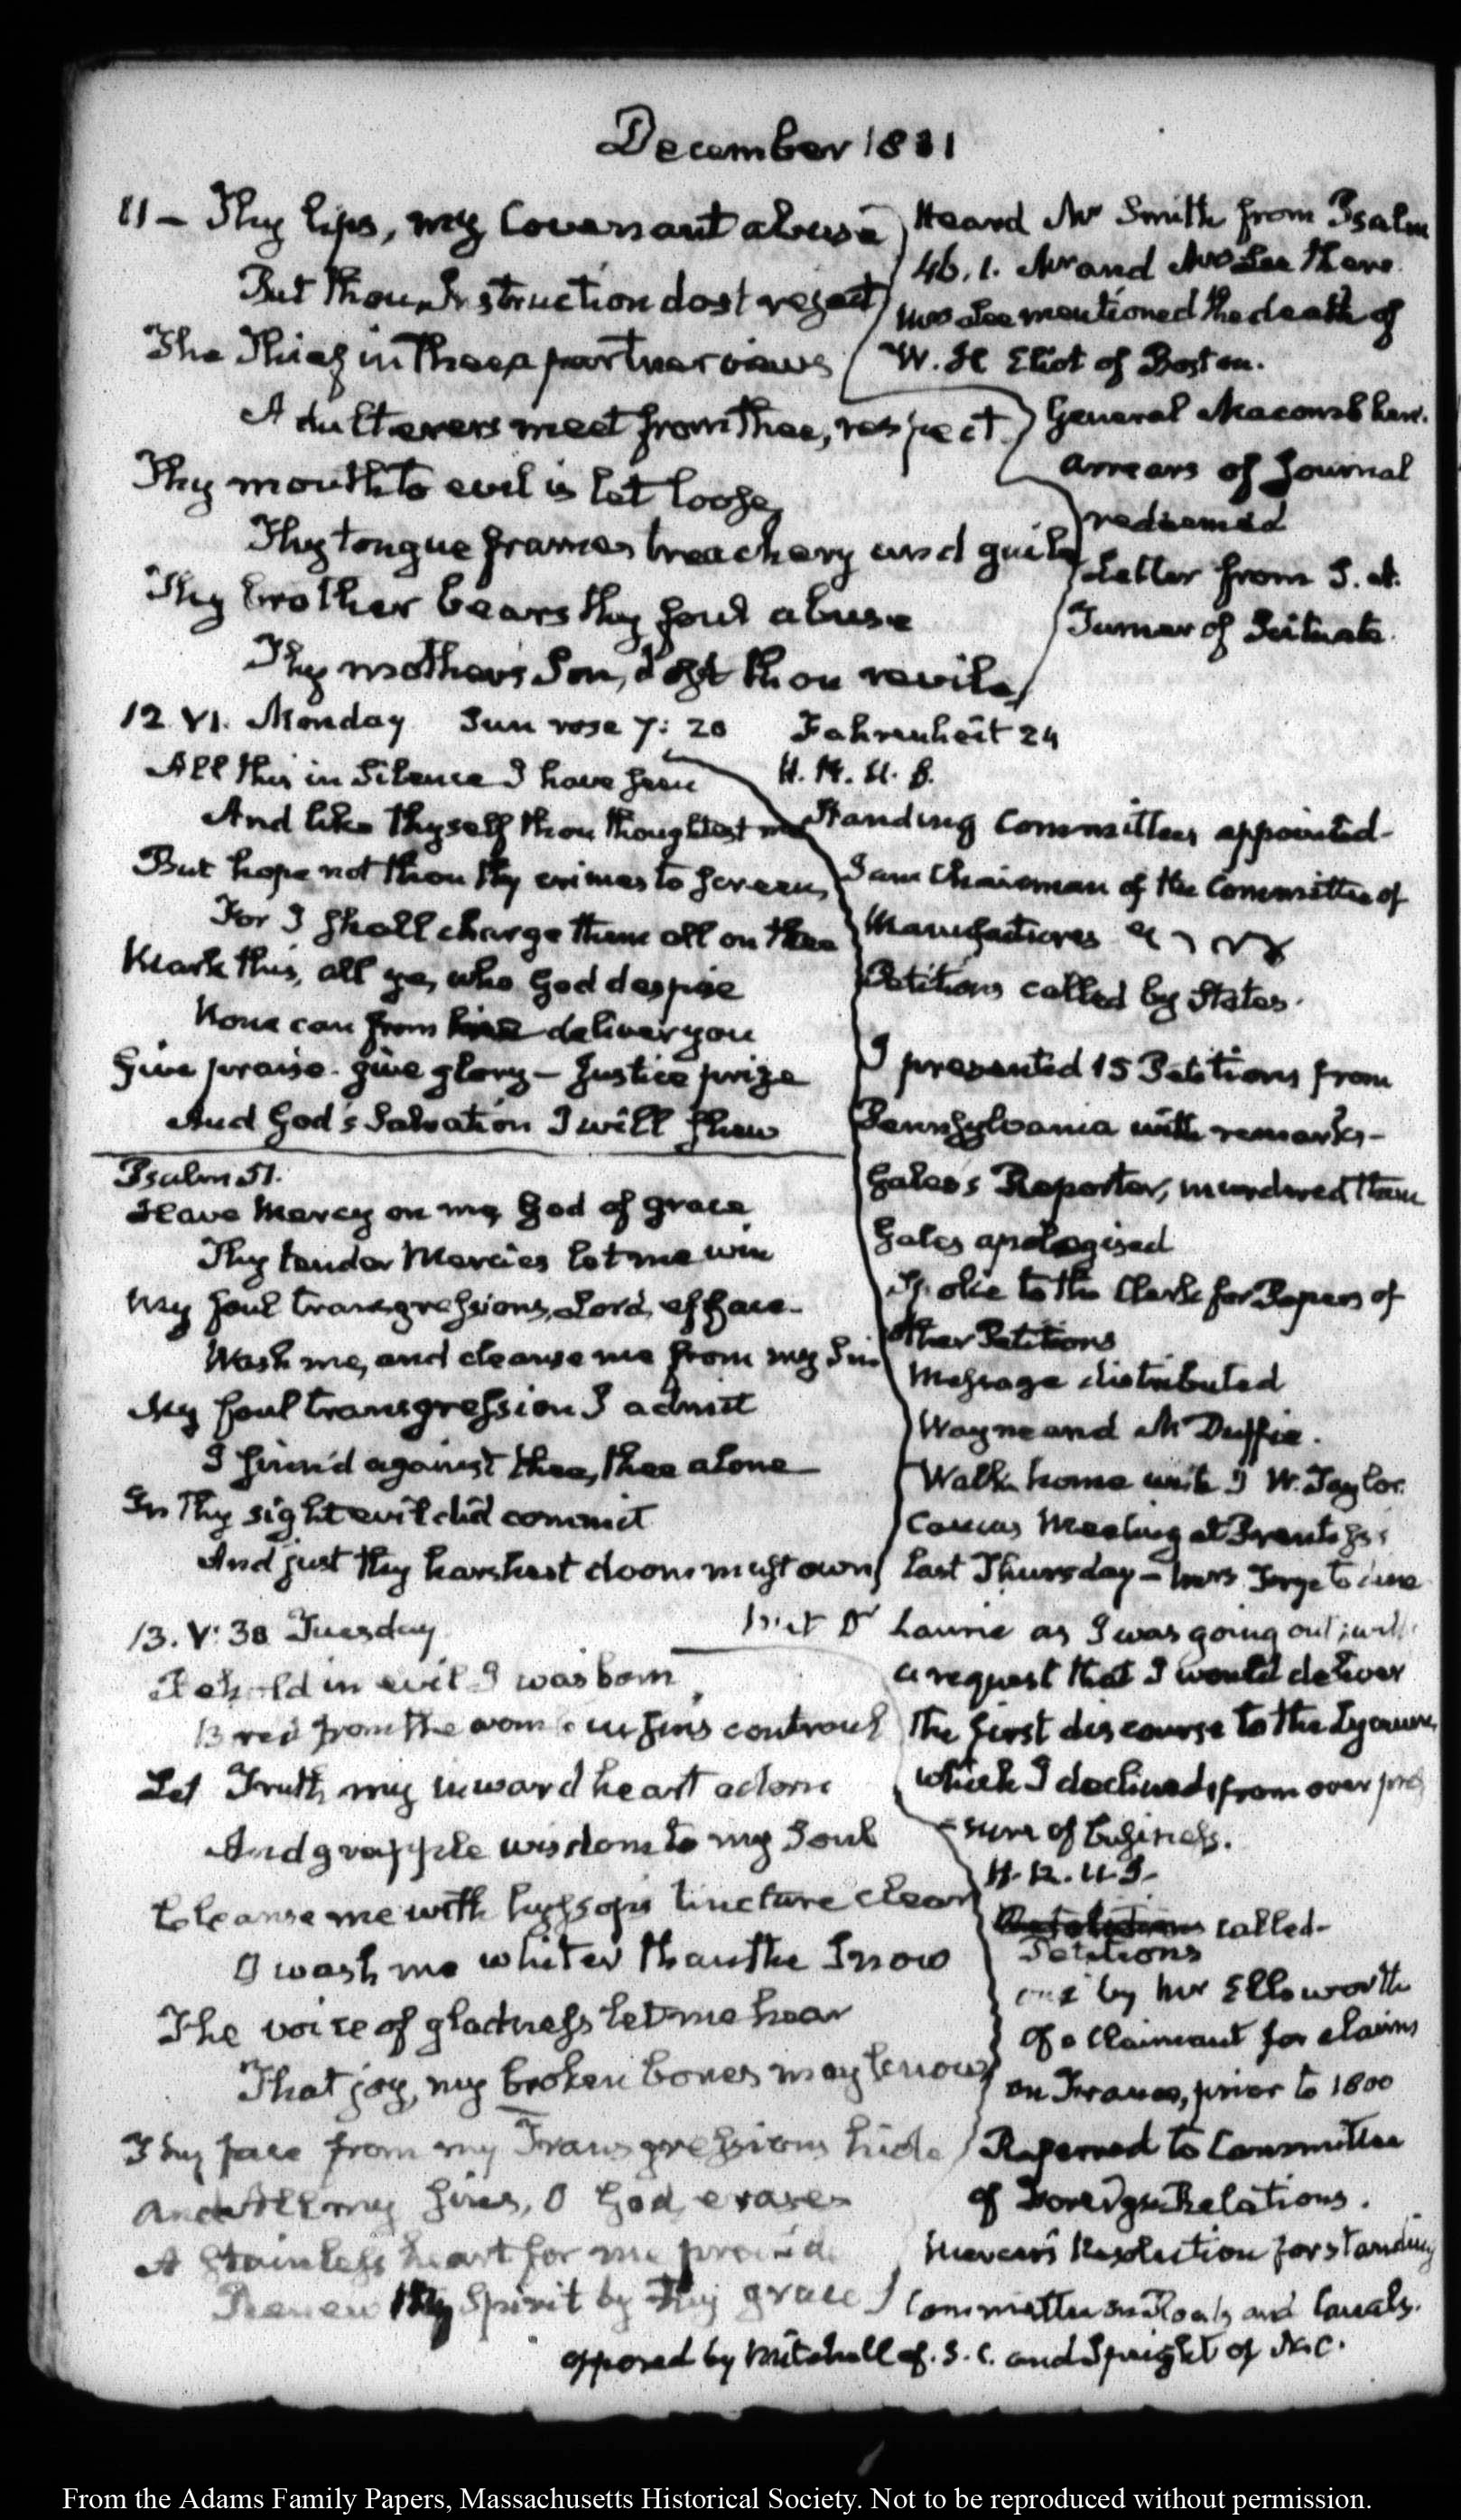 December 1831
11 – Thy lips, my Covenant abuse
But thou Instruction dost reject
The Thief in Thee, a partner views
Adulterers meet from Thee, respect.
Thy mouth to evil is let loose,
Thy tongue frames treachery and guile
Thy brother bears thy foul abuse
Thy mother's Son, dost thou revile,
Heard Mr Smith from Psalm
46. 1. Mr and Mrs Lee there.
Mrs Lee mentioned the death of
W. H Eliot of Boston.
General Macomb here.
Arrears of Journal
redeemed
Letter from S. A.
Turner of Scituate.
12. VI. Monday Sun rose 7: 20 Fahrenheit 24
All this in Silence I have seen
And like thyself thou thoughtest me
But hope not thou thy crimes to screen,
For I shall charge them all on thee
Mark this, all ye, who God despise
None can from deliver you
Give praise – give glory – Justice prize
And God's Salvation I will shew
Psalm 51.
Have Mercy on me, God of grace
Thy tender Mercies let me win
My foul transgressions, Lord, efface –
Wash me, and cleanse me from my Sin
My foul transgression I admit
I sinn'd against thee, thee alone
In Thy sight evil did commit
And just thy harshest doom must own
H. R. U. S.
Standing Committees appointed –
I am Chairman of the Committee of
Manufactures
Petitions called by States.
I presented 15 Petitions from
Pennsylvania with remarks –
Gales's Reporter, murdered them
Gales apologised
Spoke to the Clerk for Papers of
other Petitions
Message distributed
Wayne and McDuffie.
Walk home with J W. Taylor.
Caucus Meeting at
last Thursday – to dine
13. V: 30 Tuesday
Behold in evil I was born
Bred from the womb in sins controul
Let Truth my inward heart adorn
And grapple wisdom to my Soul
Cleanse me with hyssop's tincture clear
O wash me whiter than the Snow
The voice of gladness let me hear
That joy, my broken bones may know
Thy face from my Transgressions hide
And all my sins, O God, erase
A Stainless heart for me provide
Renew thy Spirit by Thy grace
Dr Laurie as I was going out; with
a request that I would deliver
the first discourse to the Lyceum,
which I declined, from over pres
sure of business.
H. R. U. S.
called –
Petitions
one by Mr Ellsworth
of a Claimant for claims
on France, prior to 1800
Referred to Committee
of Foreign Relations.
Mercer's Resolution for standing
Committee on Roads and Canals.
opposed by Mitchell of S. C. and Speight of N. C.
From the Adams Family Papers, Massachusetts Historical Society. Not to be reproduced without permission.